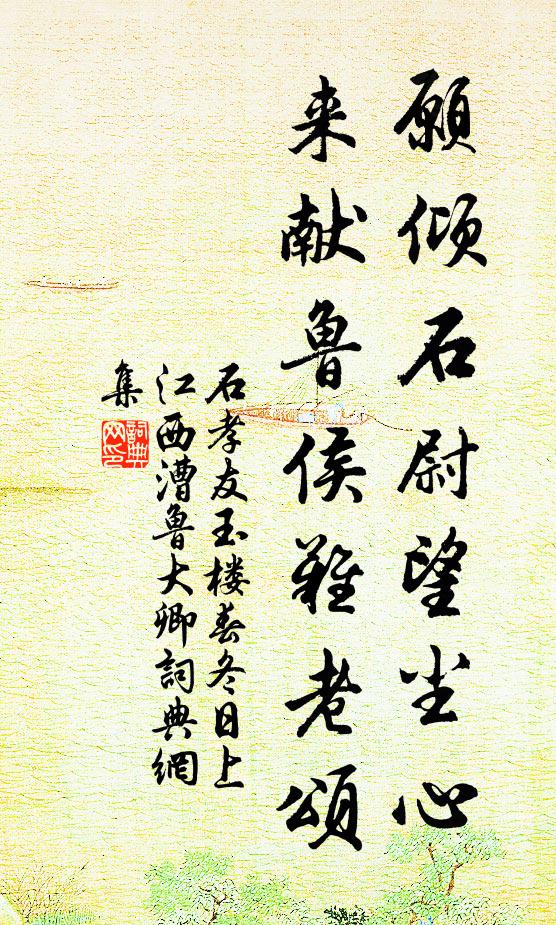 願傾石尉望尘心
来献魯侯難老頌
石孝友玉楼春冬日上
江西漕魯大卿詞典網
集
詞典
网印